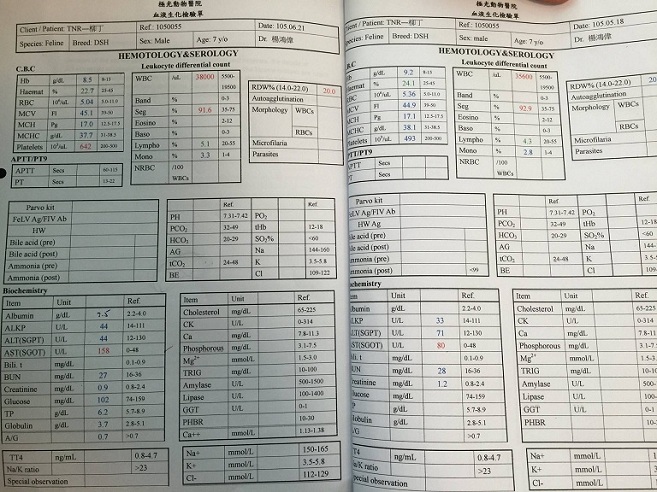 極光動物醫院
血液生化檢驗單
Client / Patient: TNR—柳丁 Ref.: 1050055 Date: 105.06.21
Species: Feline Breed: DSH Sex: Male Age: 7 y/o Dr. 楊鴻偉
HEMOTOLOGY&SEROLOGY
C.B.C Leukocyte differential count
Hb g/dL 8.5 8-15
Haemat % 22.7 25-45
RBC 10⁶/uL 5.04 5.0-11.0
MCV Fl 45.1 39-50
MCH Pg 17.0 12.5-17.5
MCHC g/dL 37.7 31-38.5
Platelets 10³/uL 642 200-500
APTT/PT9
APTT Secs 60-115
PT Secs 15-22
WBC /uL 38000 5500-19500
Band % 0-3
Seg % 91.6 35-75
Eosino % 2-12
Baso % 0-2
Lympho % 5.1 20-55
Mono % 3.3 1-4
NRBC /100 WBCs
RDW% (14.0-22.0) 20.0
Autoagglutination
Morphology WBCs
RBCs
Microfilaria
Parasites
Parvo kit
FeLV Ag/FIV Ab
HW
Bile acid (pre)
Bile acid (post)
Ammonia (pre)
Ammonia (post)
Ref. Ref
PH 7.31-7.42 PO₂
PCO₂ 32-49 tHb 12-18
HCO₃ 20-29 SO₂% <60
AG Na 144-160
tCO₂ 24-48 K 3.5-5.8
BE Cl 109-122
Biochemistry
Item Unit Ref
Albumin g/dL 2.5 2.2-4.0
ALKP U/L 44 14-111
ALT(SGPT) U/L 44 12-130
AST(SGOT) U/L 158 0-48
Bili. t mg/dL 0.1-0.9
BUN mg/dL 27 16-36
Creatinine mg/dL 0.9 0.8-2.4
Glucose mg/dL 102 74-159
TP g/dL 6.2 5.7-8.9
Globulin g/dL 3.7 2.8-5.1
A/G 0.7 >0.7
Item Unit Ref.
Cholesterol mg/dL 65-225
CK U/L 0-314
Ca mg/dL 7.8-11.3
Phosphorous mg/dL 3.1-7.5
Mg²⁺ mmol/L 1.5-3.0
TRIG mg/dL 10-100
Amylase U/L 500-1500
Lipase U/L 100-1400
GGT U/L 0-1
PHBR 10-30
Ca++ mmol/L 1.13-1.38
TT4 ng/mL 0.8-4.7
Na/K ratio >23
Special observation
Na+ mmol/L 150-165
K+ mmol/L 3.5-5.8
Cl- mmol/L 112-129
極光動物醫院
血液生化檢驗單
Client / Patient: TNR—柳丁 Ref.: 1050055 Date: 105.05.18
Species: Feline Breed: DSH Sex: Male Age: 7 y/o Dr. 楊鴻偉
HEMOTOLOGY&SEROLOGY
C.B.C Leukocyte differential count
Hb g/dL 9.2 8-15
Haemat % 24.1 25-45
RBC 10⁶/uL 5.36 5.0-11.0
MCV Fl 44.9 39-50
MCH Pg 17.1 12.5-17.5
MCHC g/dL 38.1 31-38.5
Platelets 10³/uL 493 200-500
APTT/PT9
APTT Secs
PT Secs
WBC /uL 35600 5500-19500
Band % 0-3
Seg % 92.9 35-75
Eosino % 2-12
Baso % 0-2
Lympho % 4.3 20-55
Mono % 2.8 1-4
NRBC /100 WBCs
RDW% (14.0-22.0) 20
Autoagglutination
Morphology WBCs
RBCs
Microfilaria
Parasites
Parvo kit
FeLV Ag/FIV Ab
HW Ag
Bile acid (pre)
Bile acid (post)
Ammonia (pre)
Ammonia (post) <99
Ref. Ref
PH 7.31-7.42 PO₂
PCO₂ 32-49 tHb 12-18
HCO₃ 20-29 SO₂% <60
AG Na 144-160
tCO₂ 24-48 K 3.5-5.8
BE Cl 109-122
Biochemistry
Item Unit Ref.
Albumin g/dL 2.2-4.0
ALKP U/L 33 14-111
ALT(SGPT) U/L 71 12-130
AST(SGOT) U/L 80 0-48
Bili. t mg/dL 0.1-0.9
BUN mg/dL 28 16-36
Creatinine mg/dL 1.2 0.8-2.4
Glucose mg/dL 74-159
TP g/dL 5.7-8.9
Globulin g/dL 2.8-5.1
A/G >0.7
Item Unit Ref.
Cholesterol mg/dL 65-225
CK U/L 0-314
Ca mg/dL 7.8-11
Phosphorous mg/dL 3.1-7.
Mg²⁺ mmol/L 1.5-3.
TRIG mg/dL 10-100
Amylase U/L 500-
Lipase U/L 100-
GGT U/L 0-1
PHBR 10-
Ca++ mmol/L 1.
TT4 ng/mL 0.8-4.7
Na/K ratio >23
Special observation
Na+ mmol/L 1
K+ mmol/L 3
Cl- mmol/L